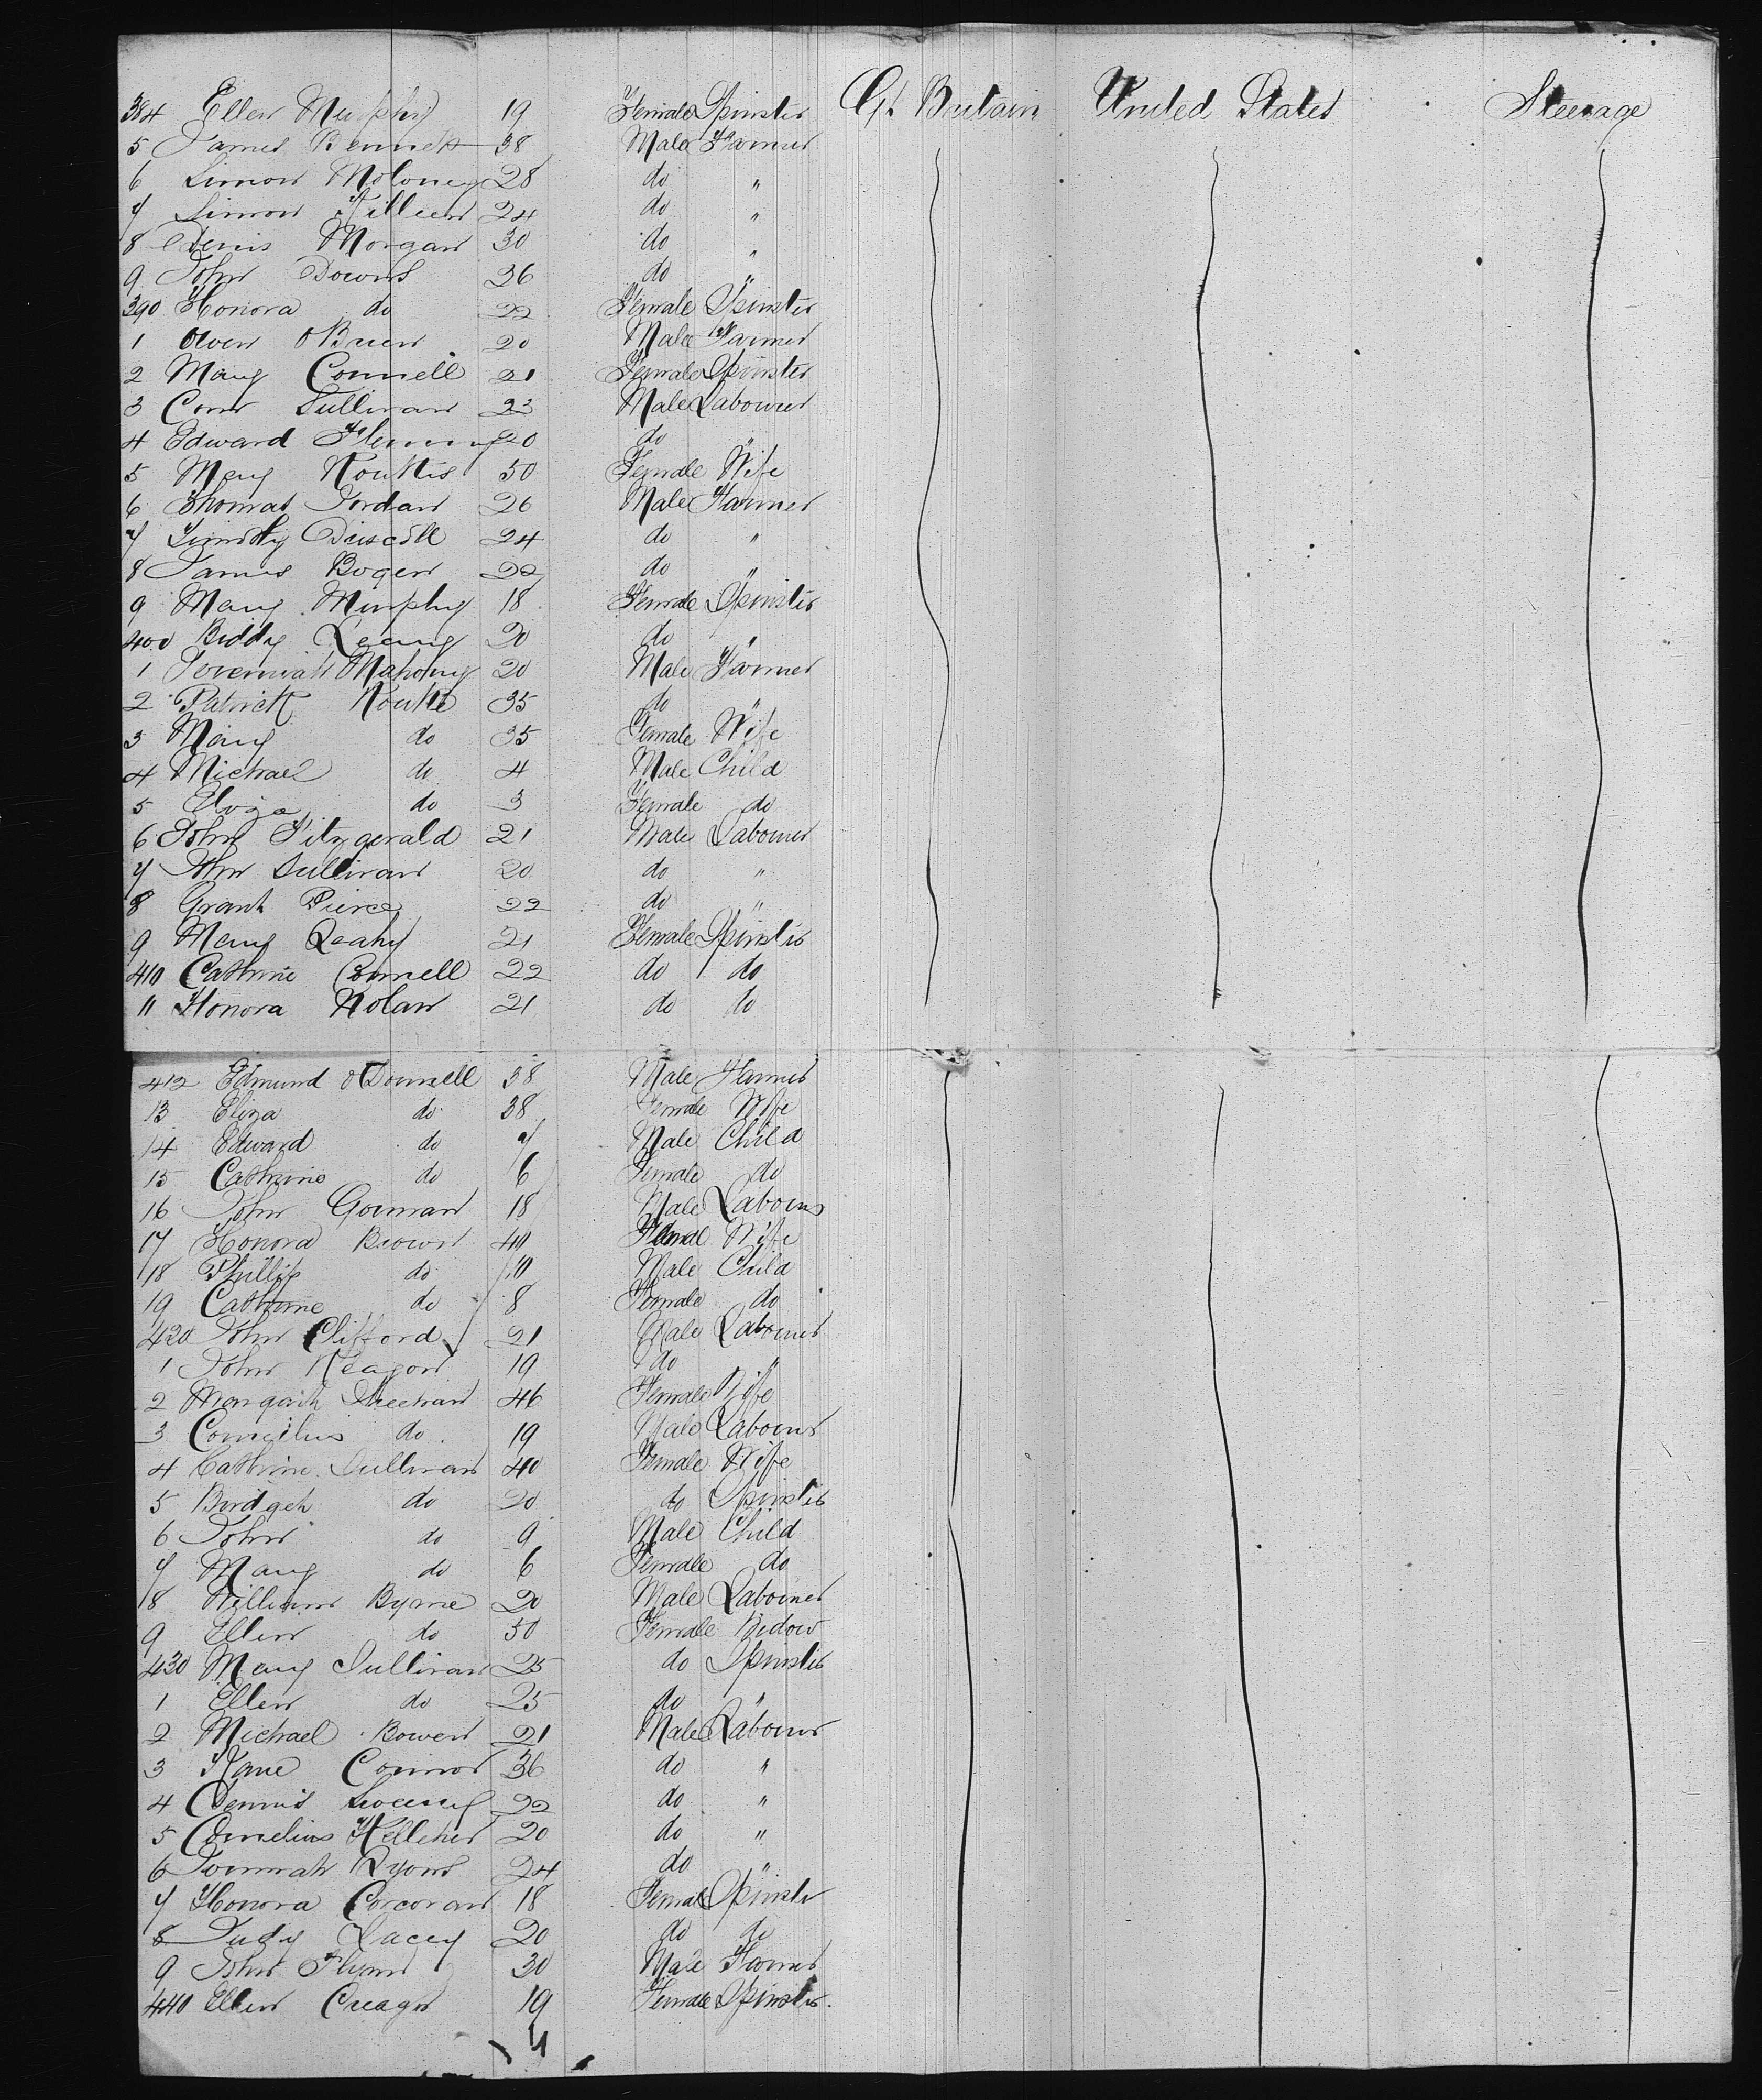 384 Ellen Murphy 19 Female Spinster Gt Britain United States Steerage
5 James Bennett 38 Male Farmer
6 Simon Moloney 28 do "
7 Simon Killeen 24 do "
8 Denis Morgan 30 do "
9 John Downs 26 do "
390 Honora do 22 Female Spinster
1 Owen OBrien 20 Male Farmer
2 Mary Connell 21 Female Spinster
3 Conr Sullivan 23 Male Labourer
4 Edward Fleming 20 do "
5 Mary 50 Female Wife
6 Thomas Jordan 26 Male Farmer
7 Timothy Driscoll 24 do "
8 James Bogen 22 do "
9 Mary Murphy 18 Female Spinster
400 Biddy Leany 20 do "
1 Jeremiah Mahony 20 Male Farmer
2 Patrick 35 do "
3 Mary do 35 Female Wife
4 Michael do 4 Male Child
5 Eliza do 3 Female do
6 John Fitzgerald 21 Male Labourer
7 John Sullivan 20 do "
8 Grant Pierce 22 do "
9 Mary Leahy 21 Female Spinster
410 Cathrine Connell 22 do do
11 Honora Nolan 21 do do
412 Edmund ODonnell 38 Male Farmer
13 Eliza do 38 Female Wife
14 Edward do 7 Male Child
15 Cathrine do 6 Female do
16 John Gorman 18 Male Labourer
17 Honora Brown 40 Female Wife
18 Phillip do 10 Male Child
19 Cathrine do 8 Female do
420 John Clifford 21 Male Labourer
1 John Reagon 19 do "
2 Margarit Sheehan 46 Female Wife
3 Cornelius do 19 Male Labourer
4 Cathrine Sullivan 40 Female Wife
5 Bridget do 20 do Spinster
6 John do 9 Male Child
7 Mary do 6 Female do
8 William Byrne 20 Male Labourer
9 Ellen do 50 Female Widow
430 Mary Sullivan 25 do Spinster
1 Ellen do 25 do "
2 Michael Bowen 21 Male Labourer
3 Connor 36 do "
4 Dennis 22 do "
5 Cornelius Kelleher 20 do "
6 Lyons 24 do "
7 Honora Corcoran 18 Female Spinster
8 Judy Lacey 20 do do
9 John Flynn 30 Male Farmer
440 Ellen Creagh 19 Female Spinster